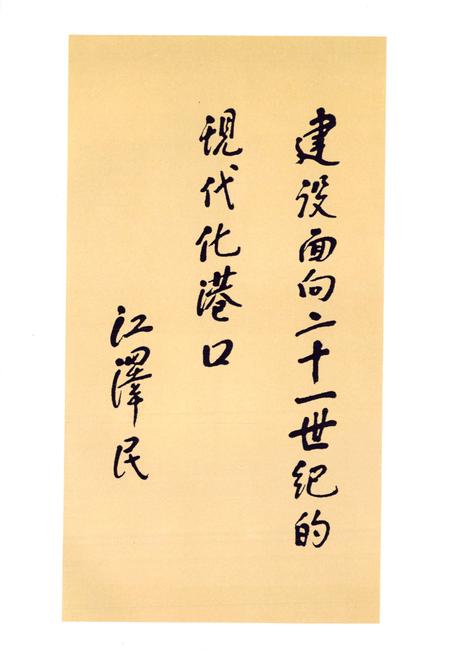 建设面向二十一世纪的
现代化港口
江澤民